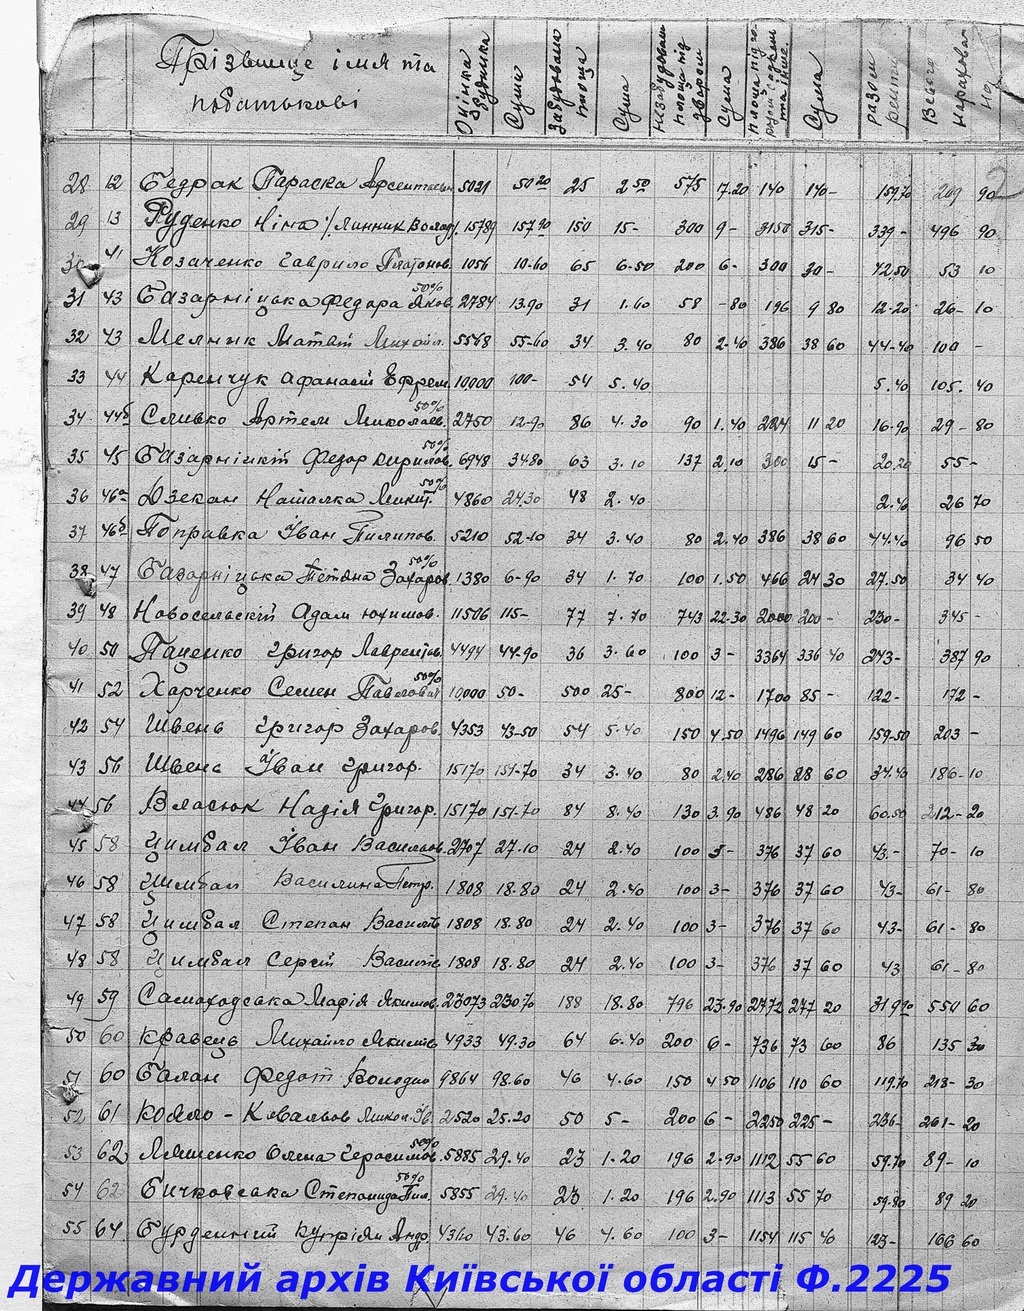 Прізвище імя та по батькові Оцінка будинка Сума Забудована площа Сума Незабудован площа під двором Сума площа під Сума разом ренти Всього нарахован
28 12 Бедрак Параска 5021 50 20 25 2 50 575 17.20 140 140- 159.70 209 90
29 13 Руденко Ніна /Линник Волод/ 15789 157 90 150 15- 300 9- 3150 315- 339- 496 90
30 41 Козаченко Гаврило Платонов. 1056 10-60 65 6-50 200 6- 300 30- 42.50 53 10
31 43 Базарніцька Федора Яков. 50% 2784 13.90 31 1.60 58 -80 196 9 80 12-20 26- 10
32 43 Мелник Матвій Михайл. 5568 55-60 34 3.40 80 2-40 386 38 60 44-40 100 -
33 44 Каренчук Афанасій Ефрем. 10000 100- 54 5.40 5.40 105. 40
34 44б Сливко Артем Миколаев. 50% 2750 12-90 86 4.30 90 1.40 224 11 20 16-90 29- 80
35 45 Базарніцкій Федор Кирилов. 50% 6948 34.80 63 3.10 137 2.10 300 15- 20.20 55-
36 46а Дзекан Наталка Микит. 50% 4860 24.30 48 2.40 2.40 26 70
37 46б Поправка Іван Пилипов. 5210 52-10 34 3.40 80 2.40 386 38 60 44.40 96 50
38 47 Базарніцька Тетяна Захаров 50% 1380 6-90 34 1.70 100 1.50 466 24 30 27.50 34 40
39 48 Новосельскій Адам Юхимов. 11506 115- 77 7.70 743 22.30 2000 200- 230- 345 -
40 50 Паценко Григор Лаврентіов. 4494 44-90 36 3.60 100 3- 3364 336 40 343- 387 90
41 52 Харченко Семен Павлович 50% 10.000 50- 500 25- 800 12- 1700 85- 122- 172 -
42 54 Швень Григор Захаров. 4353 43-50 54 5.40 150 4.50 1496 149 60 159-50 203 -
43 56 Швень Іван Григор. 15170 151-70 34 3.40 80 2.40 286 28 60 34.40 186-10
44 56 Власюк Надія Григор. 15170 151-70 84 8.40 130 3.90 486 48 20 60.50 212-20
45 58 Цимбал Іван Васильов. 2707 27.10 24 2.40 100 3- 376 37 60 43.- 70- 10
46 58 Цимбал Василина Петр. 1808 18.80 24 2.40 100 3- 376 37 60 43- 61- 80
47 58 Цимбал Степан Василів 1808 18.80 24 2.40 100 3- 376 37 60 43- 61- 80
48 58 Цимбал Сергій Василів 1808 18.80 24 2.40 100 3- 376 37 60 43 61- 80
49 59 Самоходська Марія Якимов. 23073 230 70 188 18.80 796 23.90 2772 277 20 319 90 550 60
50 60 Кравець Михайло Якимів 4933 49.30 64 6.40 200 6- 736 73 60 86 135 30
51 60 Балан Федот Володим 9864 98.60 46 4.60 150 4 50 1106 110 60 119.70 218- 30
52 61 Ковальов Микол. Ів. 2520 25.20 50 5- 200 6- 2250 225- 236- 261- 20
53 62 Ляшенко Олена Герасимов. 50% 5885 29.40 23 1.20 196 2.90 1112 55 60 59.70 89- 10
54 62 Бичковська Степанида Пил. 50% 5855 29.40 23 1.20 196 2.90 1113 55 70 59.80 89 20
55 64. Бурдейний Купріян Андр. 4360 43.60 46 4.60 100 3- 1154 115 40 123- 166 60
Державний архів Київської області Ф.2225